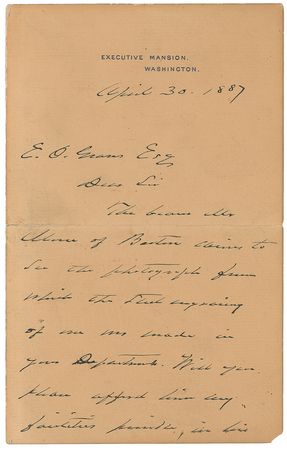 EXECUTIVE MANSION.
WASHINGTON.
April 30. 1887
E. O. Graves Esq
Dear Sir
The bearer Mr
of Boston desires to
see the photograph from
which the steel engraving
of me was made in
your Department. Will you
please afford him any
facilities possible, in his